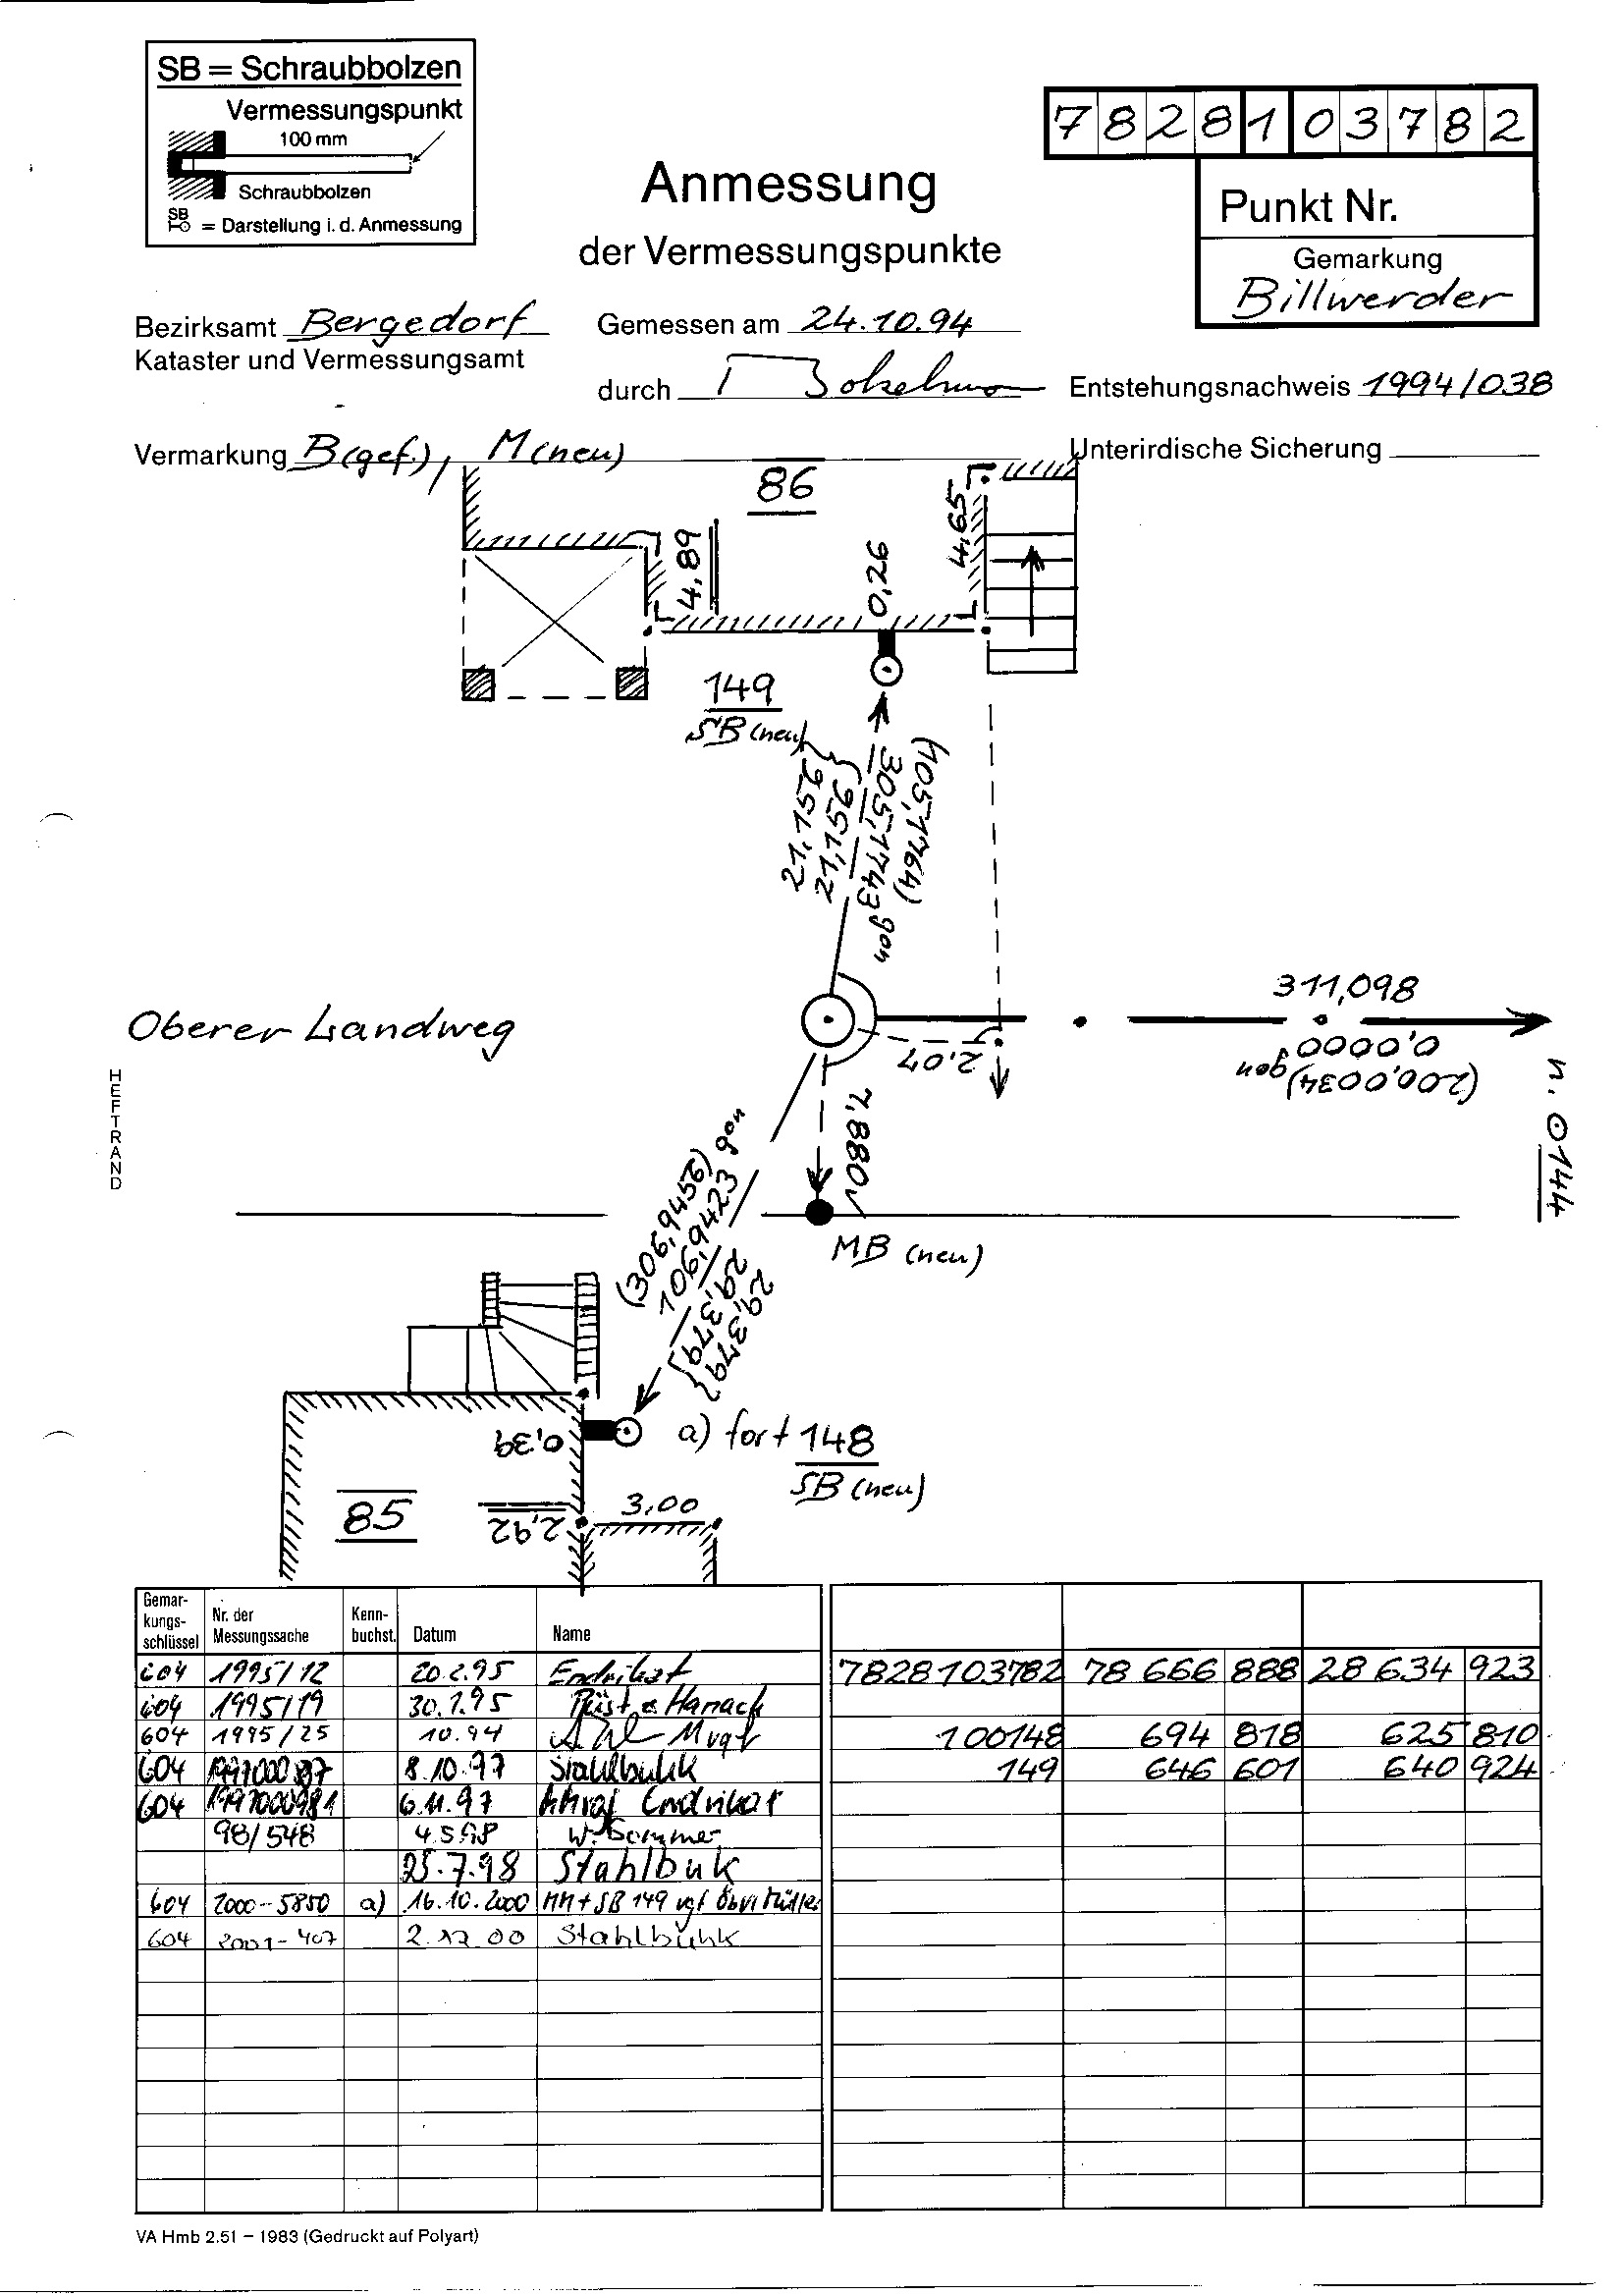 SB = Schraubbolzen
Vermessungspunkt
100 mm
Schraubbolzen
SB
= Darstellung i. d. Anmessung
Anmessung
der Vermessungspunkte
7828103782
Punkt Nr.
Gemarkung
Billwerder
Bezirksamt Bergedorf
Kataster und Vermessungsamt
Gemessen am 24.10.94
durch
Entstehungsnachweis 1994/038
Vermarkung B(gef.), M(neu)
Unterirdische Sicherung
86
4,89
4,65
0,26
149
SB (neu)
21,156
21,156
305,1743 gon
(105,1764)
Oberer Landweg
311,098
0,0000
(200,0034) gon
n. 0144
2,07
7,880
MB (neu)
(306,9456) gon
106,9423
29,379
29,379
a) fort 148
SB (neu)
0,39
85
2,92
3,00
HEFTRAND
Gemar-
kungs-
schlüssel
Nr. der
Messungssache
Kenn-
buchst.
Datum
Name
604 1995/12 20.2.95 Endrikat 7828103782 78 666 888 28 634 923
604 1995/19 30.1.95
604 1995/25 10.94 100148 694 818 625 810
604 8.10.97 Stahlbuhk 149 646 601 640 924
604 6.11.97 Endrikat
98/548 4.5.98 W. Sommer
25.7.98 Stahlbuk
604 2000-5850 a) 16.10.2000 MM + SB 149 vgl Öbvi Müller
604 2001-407 2.12.00 Stahlbuhk
VA Hmb 2.51 – 1983 (Gedruckt auf Polyart)